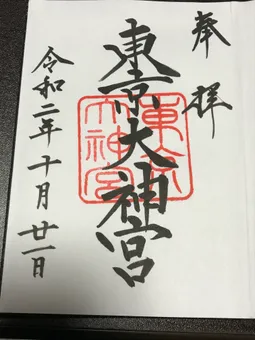 奉拝
東京大神宮
東京大神宮
令和二年十月廿一日